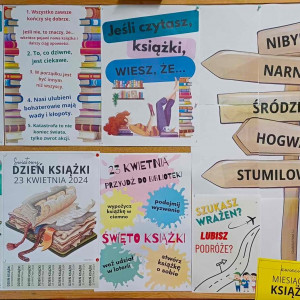 1. Wszystko zawsze
kończy się dobrze.
2. To, co dziwne,
jest ciekawe.
3. W porządku jest
być innym
niż wszyscy.
4. Nawet ulubieni
bohaterowie mają
wady i kłopoty.
Jeśli czytasz
książki,
WIESZ, ŻE...
NIBY
NARN
ŚRÓDZI
HOGWA
STUMILOW
Światowy
DZIEŃ KSIĄŻKI
23 KWIETNIA 2024
23 KWIETNIA
PRZYJDŹ DO BIBLIOTEKI
wypożycz
książkę w
ciemno
podejmij
wyzwanie
ŚWIĘTO KSIĄŻKI
weź udział
w loterii
stwórz
książkę
o sobie
SZUKASZ
WRAŻEŃ?
LUBISZ
PODRÓŻE?
MIESIĄ
KSIĄŻ